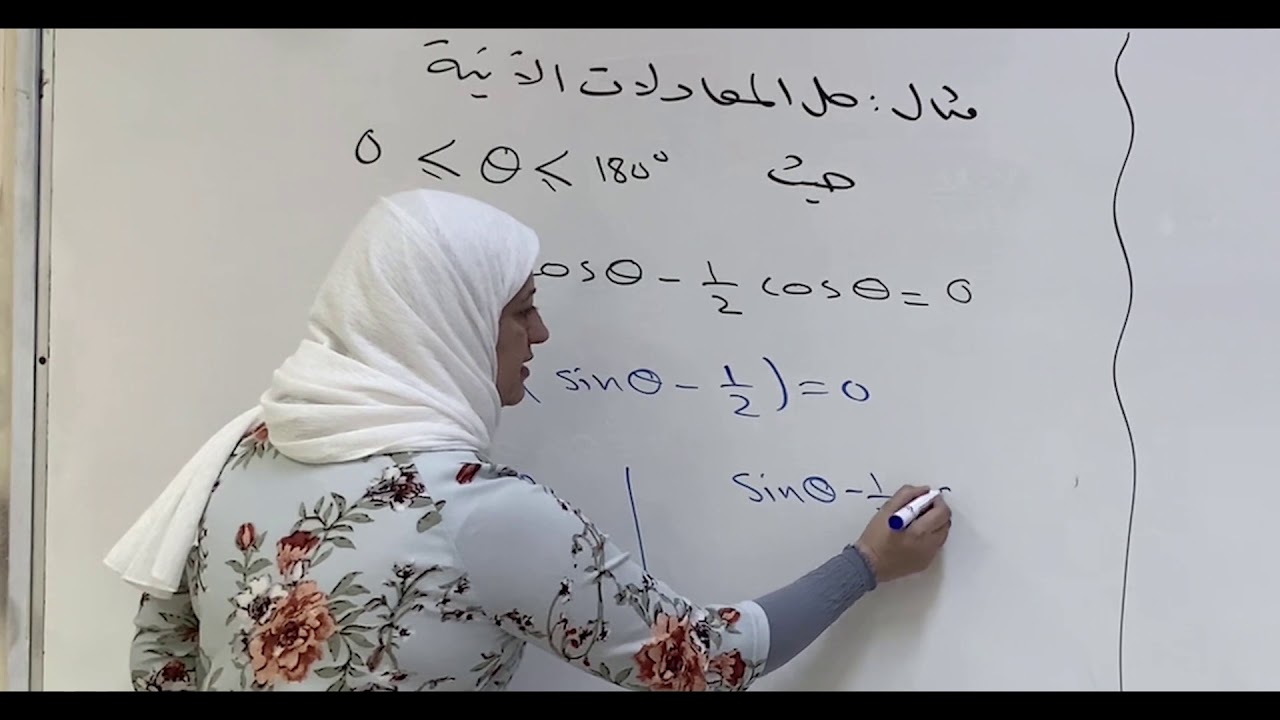 مثال: حل المعادلات الآتية
حيث 0 ≤ θ ≤ 180°
cosθ - 1/2 cosθ = 0
( sinθ - 1/2 ) = 0
sinθ - 1